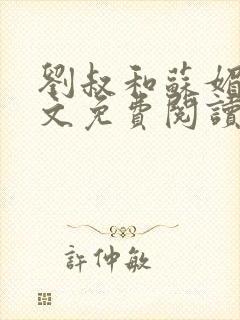 劉叔和蘇媚
文免費閱讀
許仲敏